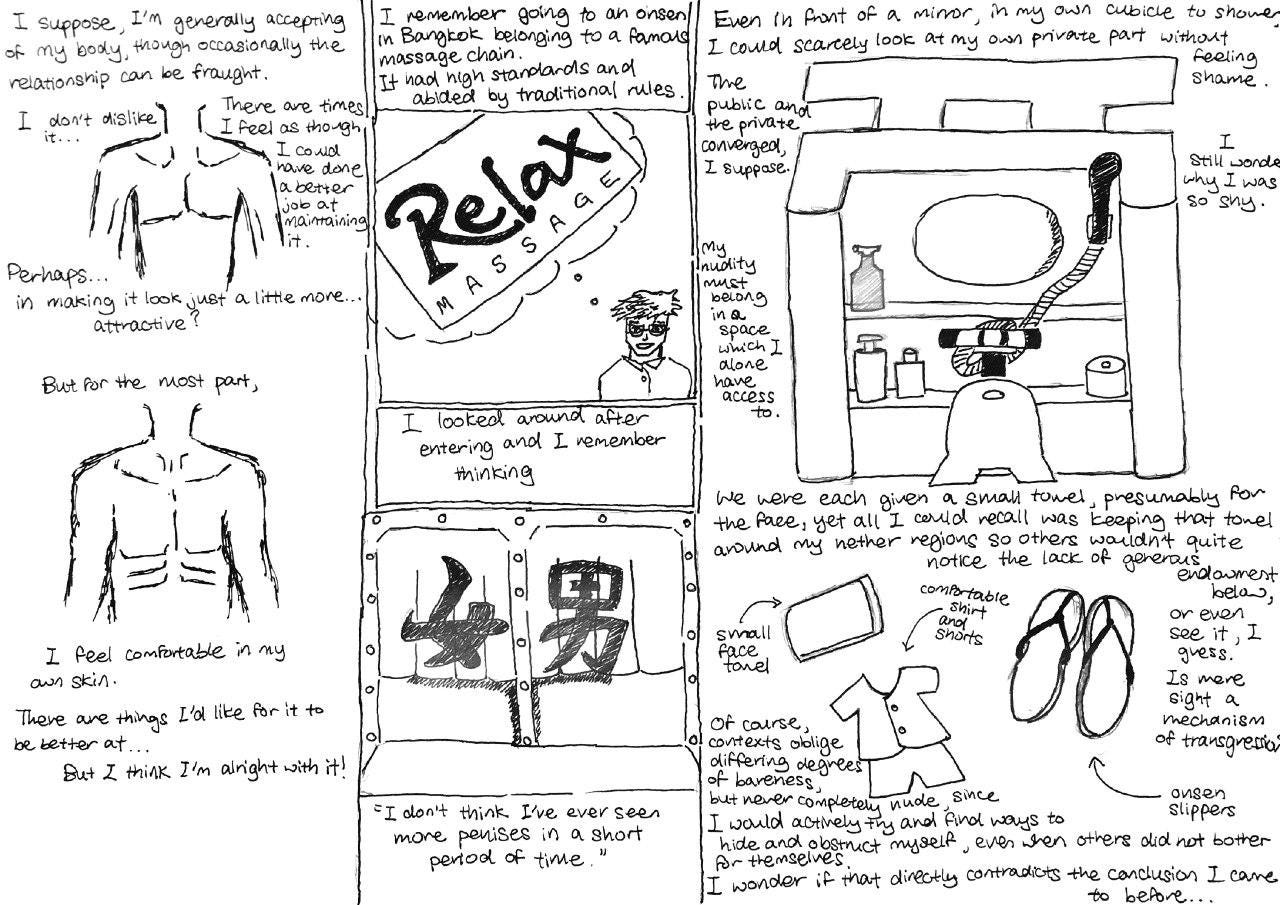 I suppose, I'm generally accepting
of my body, though occasionally the
relationship can be fraught.
I don't dislike
it...
There are times
I feel as though
I could
have done
a better
job at
maintaining
it.
Perhaps...
in making it look just a little more...
attractive?
But for the most part,
I feel comfortable in my
own skin.
There are things I'd like for it to
be better at...
But I think I'm alright with it!
I remember going to an onsen
in Bangkok belonging to a famous
massage chain.
It had high standards and
abided by traditional rules.
Relax
MASSAGE
I looked around after
entering and I remember
thinking
女 男
"I don't think I've ever seen
more penises in a short
period of time."
Even in front of a mirror, in my own cubicle to shower,
I could scarcely look at my own private part without
feeling
shame.
The
public and
the private
converged,
I suppose.
I
still wonder
why I was
so shy.
My
nudity
must
belong
in a
space
which I
alone
have
access
to.
We were each given a small towel, presumably for
the face, yet all I could recall was keeping that towel
around my nether regions so others wouldn't quite
notice the lack of generous
endowment
below,
or even
see it, I
guess.
Is mere
sight a
mechanism
of transgression
small
face
towel
comfortable
shirt
and
shorts
onsen
slippers
Of course,
contexts oblige
differing degrees
of bareness,
but never completely nude, since
I would actively try and find ways to
hide and obstruct myself, even when others did not bother
for themselves.
I wonder if that directly contradicts the conclusion I came
to before...